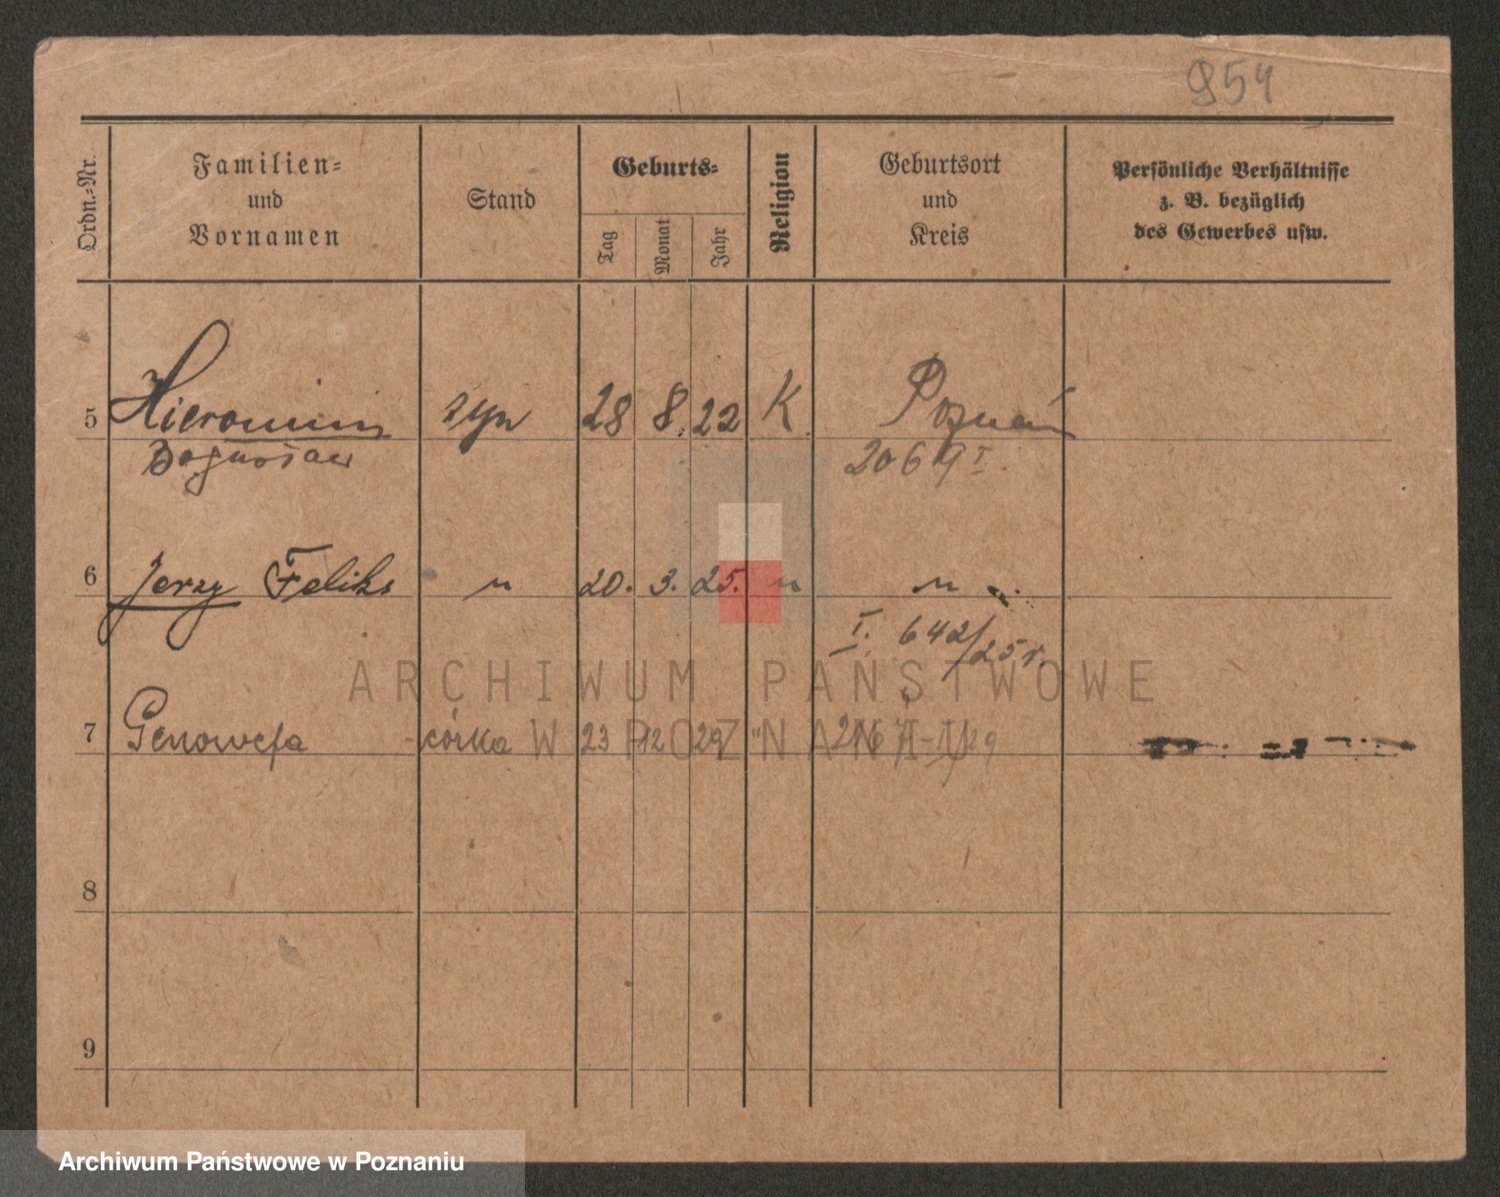 954
Ordn.-Nr.
Familien-
und
Vornamen
Stand
Geburts-
Tag
Monat
Jahr
Religion
Geburtsort
und
Kreis
Persönliche Verhältnisse
z. B. bezüglich
des Gewerbes usw.
5 Hieronim syn 28 8. 22 K Poznań
Bogusław 206
6 Jerzy Feliks " 20. 3. 25. " "
I. 642/25 r.
ARCHIWUM PAŃSTWOWE
W POZNANIU
7 Genowefa córka 23 12 29 "
8
9
Archiwum Państwowe w Poznaniu